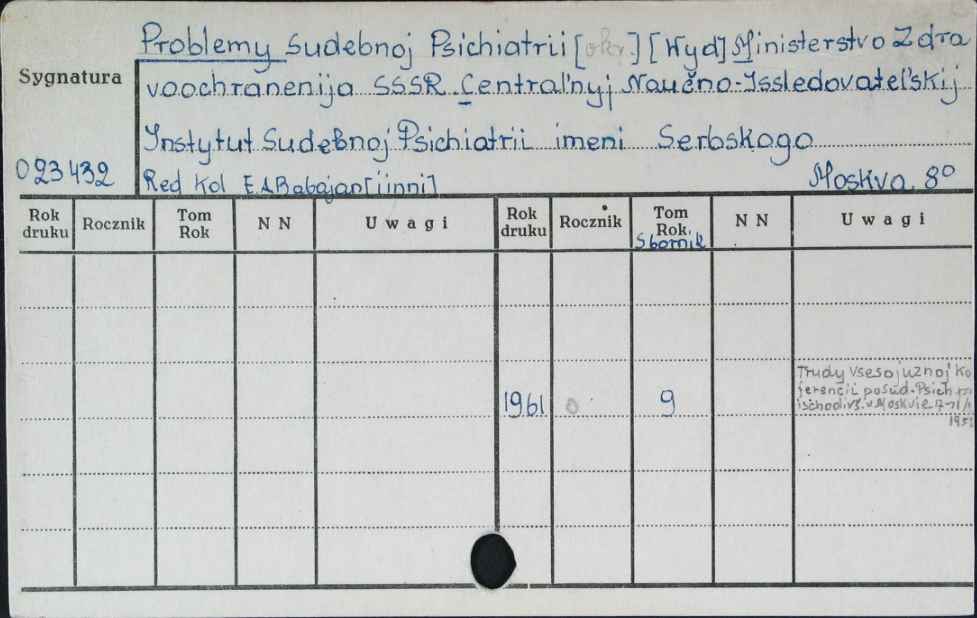 Problemy Sudebnoj Psichiatrii [okr.] [Wyd] Ministerstvo Zdra
Sygnatura
voochranenija SSSR Central'nyj Naučno-Issledovatel'skij
Instytut Sudebnoj Psichiatrii imeni Serbskogo
023432
Red Kol E.A.Babajan [i inni] Moskva 8°
Rok druku Rocznik Tom Rok N N Uwagi Rok druku Rocznik Tom Rok. N N Uwagi
Sbornik
Trudy Vsesojuznoj Ko
ferencii po Sud. Psich.
1961 0 9
v Moskvie